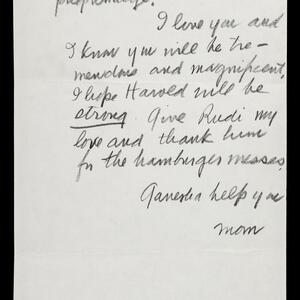 I love you and
I know you will be tre-
mendous and magnificent,
I hope Harold will be
strong. Give Rudi my
love and thank him
for the hamburger messes.
Ganesha help you
mom